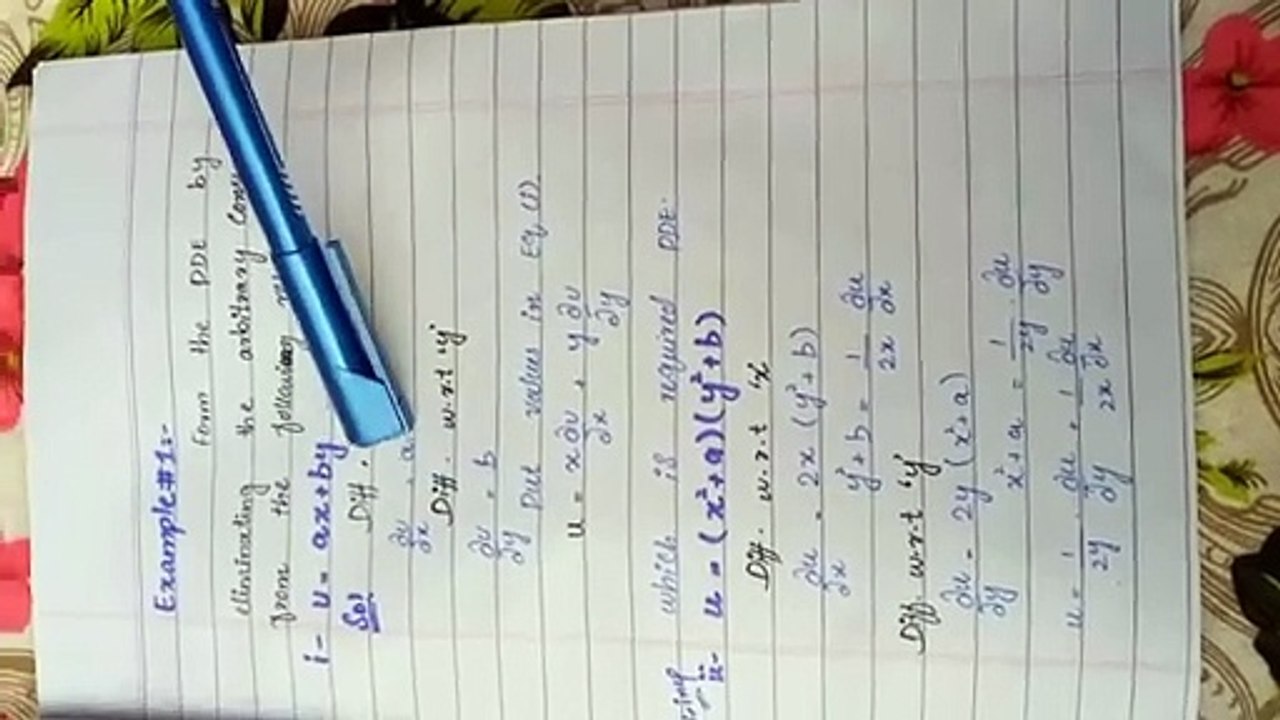 Example#1:-
Form the PDE by
eliminating the arbitrary
from the following
i- u = ax+by
Sol Diff.
∂u/∂x = a
Diff. w.r.t 'y'
∂u/∂y = b
Put values in Eq (i)
u = x ∂u/∂x + y ∂u/∂y
which is required PDE.
ii- u = (x²+a)(y²+b)
Diff. w.r.t 'x
∂u/∂x = 2x (y²+b)
y²+b = 1/2x ∂u/∂x
Diff. w.r.t 'y'
∂u/∂y = 2y (x²+a)
x²+a = 1/2y . ∂u/∂y
u = 1/2y . ∂u/∂y . 1/2x ∂u/∂x